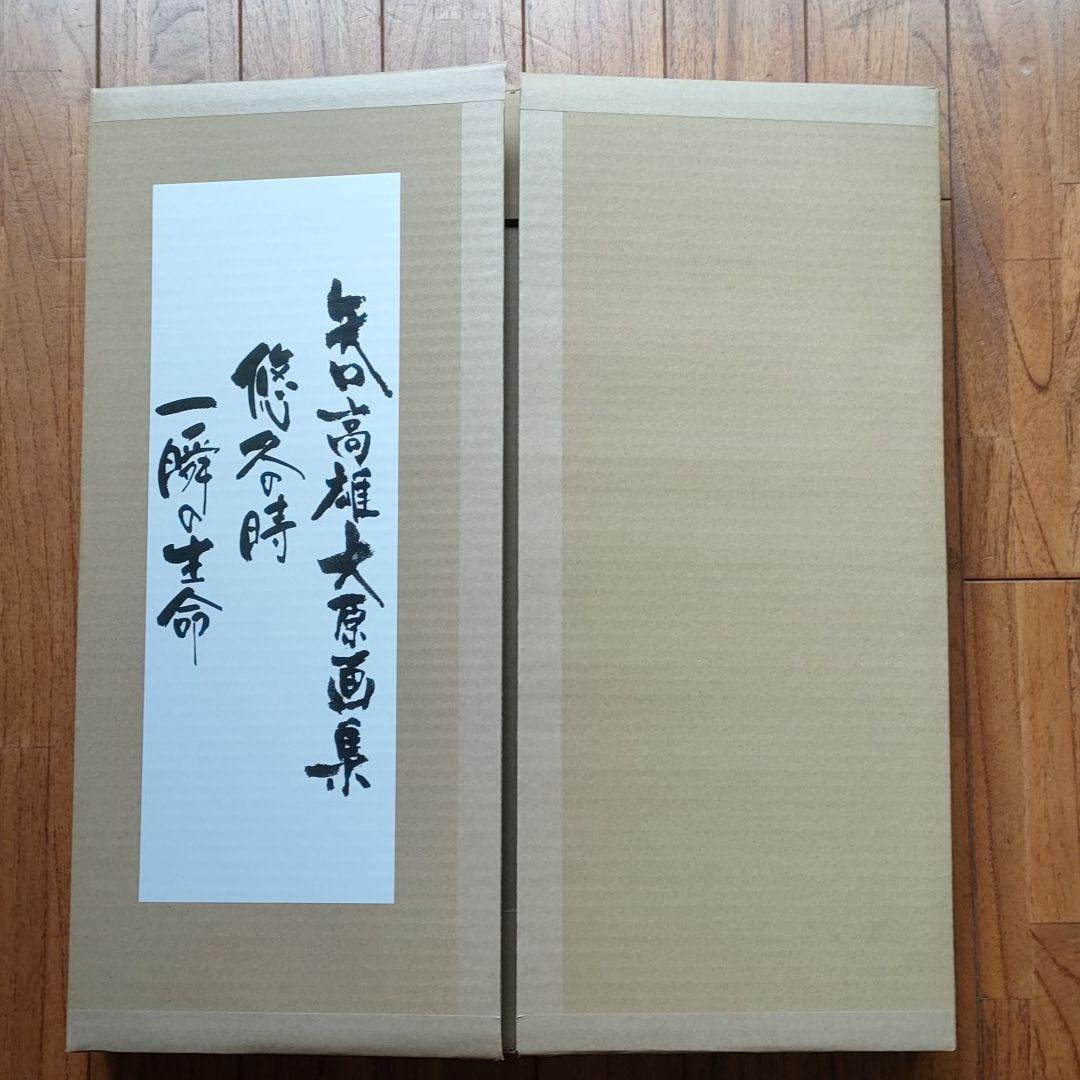 矢口高雄大原画集
悠久の時
一瞬の生命